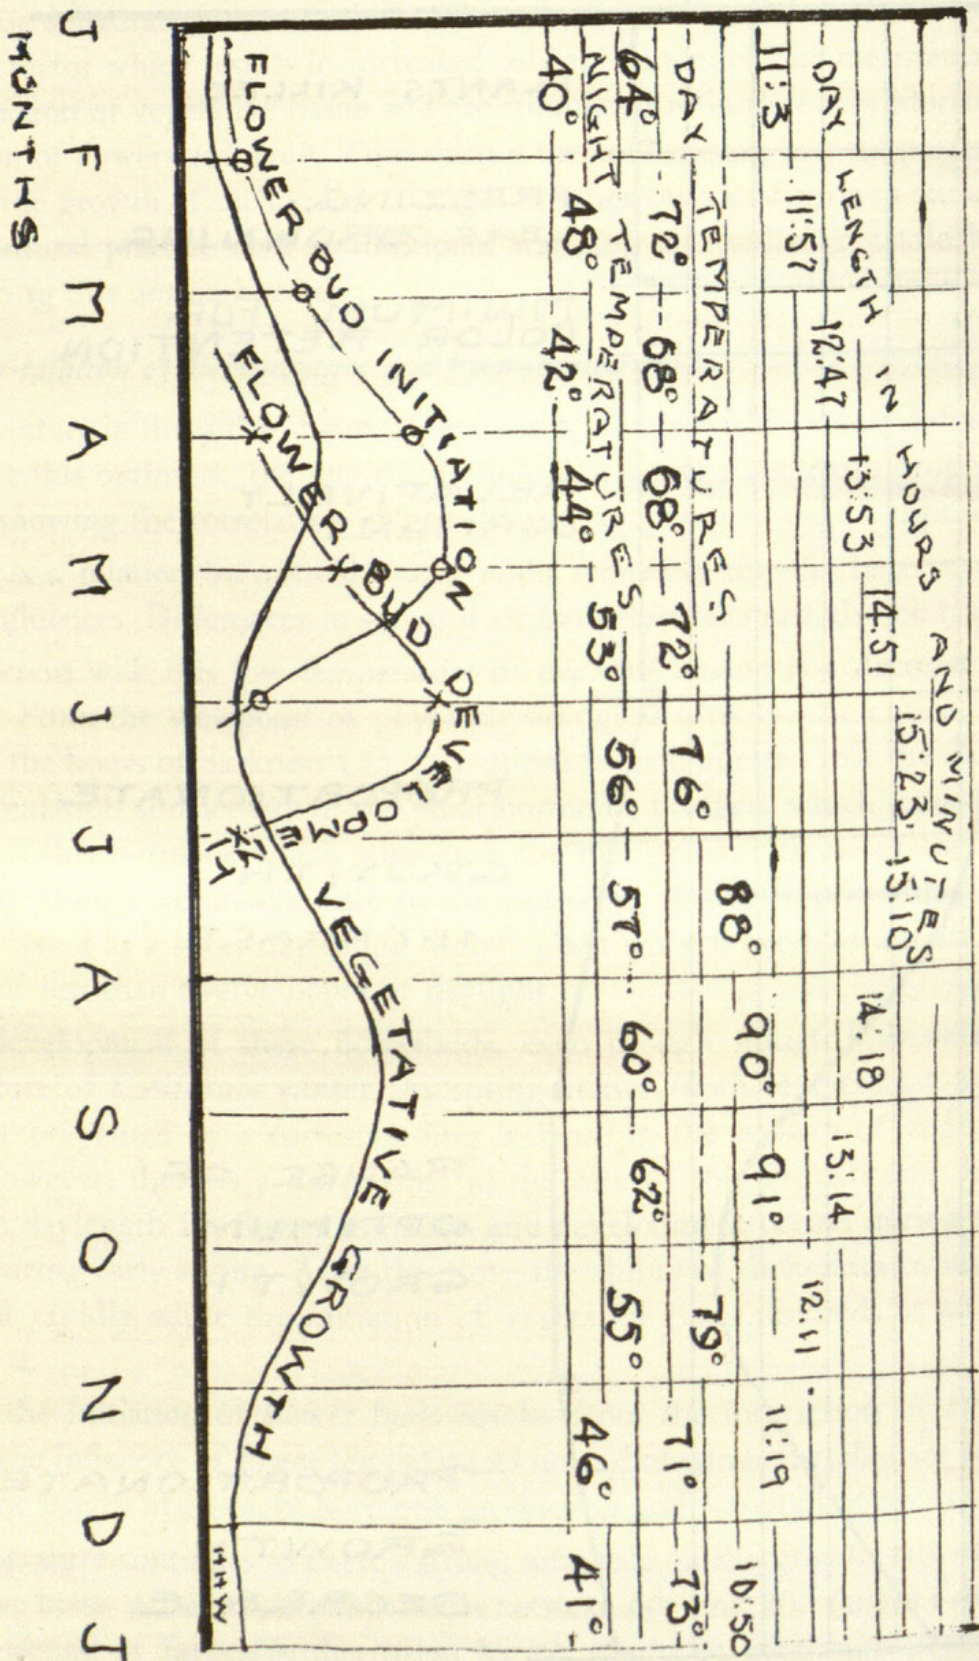 DAY LENGTH IN HOURS AND MINUTES
11:3 11:57 12:47 13:53 14:51 15:23 15:10 14:18 13:14 12:11 11:19 10:50
DAY TEMPERATURES
64° 72° 68° 68° 72° 76° 88° 90° 91° 79° 71° 73°
NIGHT TEMPERATURES
40° 48° 42° 44° 53° 56° 57° 60° 62° 55° 46° 41°
FLOWER BUD INITIATION
FLOWER BUD DEVELOPMENT
VEGETATIVE GROWTH
HHW
J F M A M J J A S O N D J
MONTHS